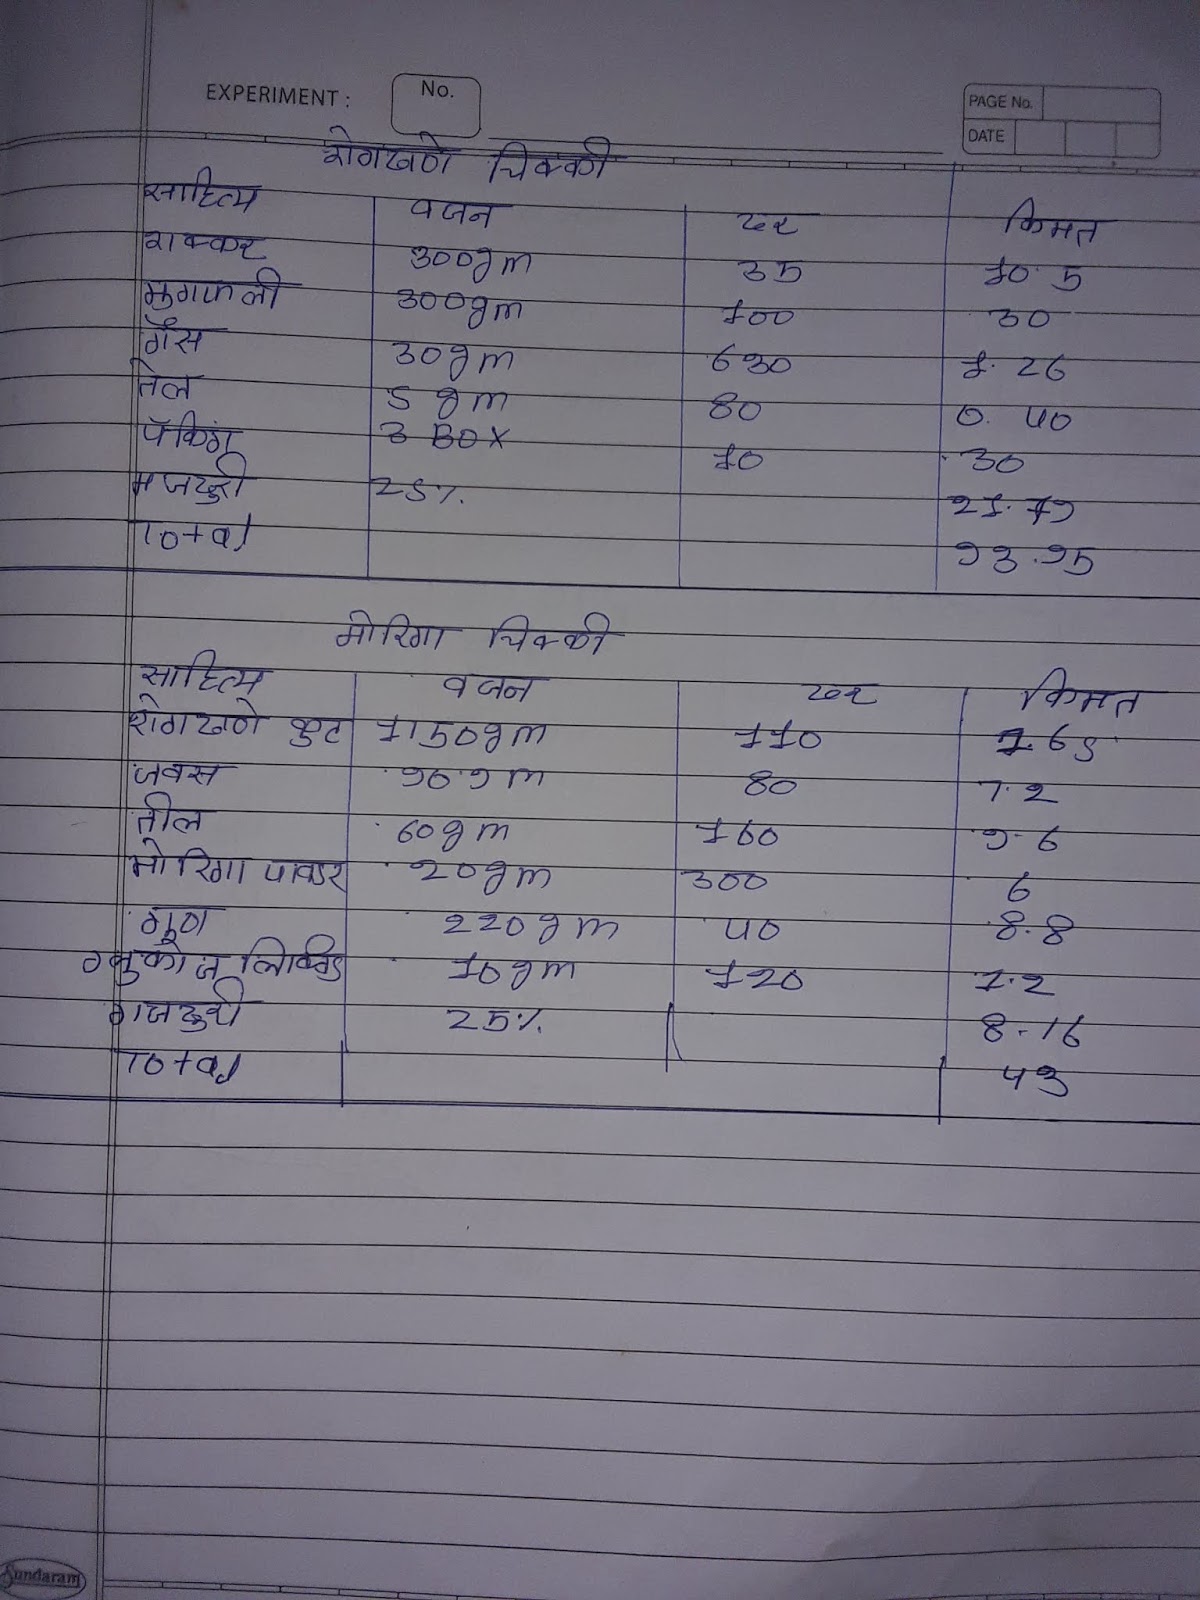 EXPERIMENT : No.
PAGE No.
DATE
शेगखणे चिक्की
साहित्य वजन दर किमत
शक्कर 300gm 35 10.5
मुगफली 300gm 100 30
गॅस 30gm 630 1.26
तेल 5 gm 80 0.40
पॅकिंग 3 BOX 10 30
मजदुरी 25% 21.79
Total 93.95
मोरिंगा चिक्की
साहित्य वजन दर किमत
शेगखणे कुट 1150gm 110 1.65
जवस 90gm 80 7.2
तील 60gm 160 9.6
मोरिंगा पावडर 20gm 300 6
गुण 220gm 40 8.8
ग्लुकोज लिक्विड 10gm 120 1.2
मजदुरी 25% 8.16
Total 43
Sundaram